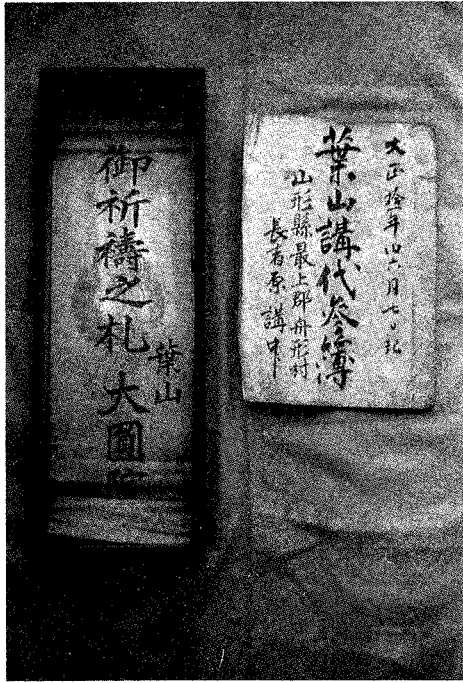 大正拾年旧六月七日記
葉山講代参簿
山形縣最上郡舟形村
長者原講中
御祈禱之札
葉山
大圓院